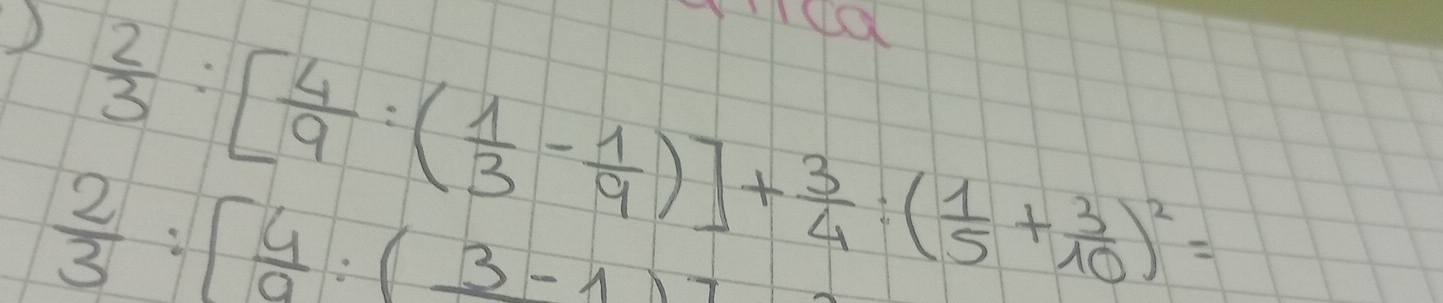 ) 2/3 : [4/9 : (1/3 - 1/9)] + 3/4 : (1/5 + 3/10)² =
2/3 : [4/9 : (3 - 1)]